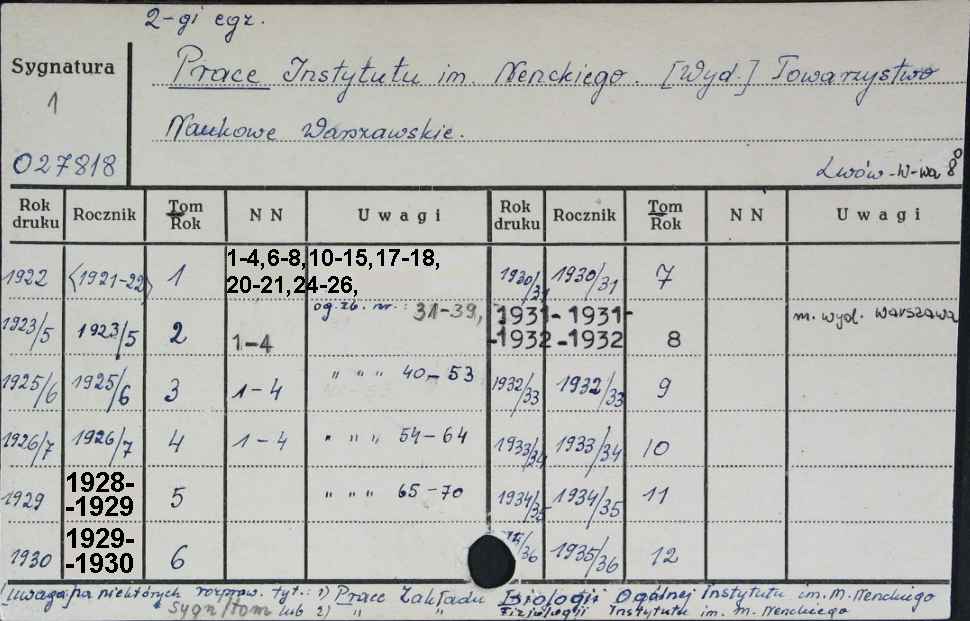 2-gi egz.
Sygnatura
1
027818
Prace Instytutu im. Nenckiego. [Wyd.] Towarzystwo
Naukowe Warszawskie.
Lwów - W-wa 8°
Rok druku Rocznik Tom Rok N N Uwagi Rok druku Rocznik Tom Rok N N Uwagi
1922 <1921-22> 1 1-4,6-8,10-15,17-18, 1930/31 1930/31 7
20-21,24-26,
1923/5 1923/5 2 1-4 og. zb. nr.: 31-39, 1931-1932 1931-1932 8 m. wyd. Warszawa
1925/6 1925/6 3 1-4 " " " 40-53 1932/33 1932/33 9
1926/7 1926/7 4 1-4 " " " 54-64 1933/34 1933/34 10
1929 1928-1929 5 " " " 65-70 1934/35 1934/35 11
1930 1929-1930 6 /36 1935/36 12
[uwaga] na niektórych rozpraw. tyt.: 1) Prace Zakładu Biologii Ogólnej Instytutu im. M. Nenckiego
* Sygn/tom lub 2) " " Fizjologji Instytutu im. M. Nenckiego